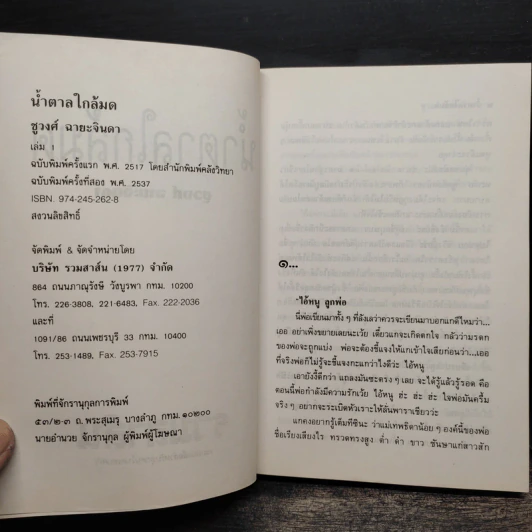 น้ำตาลใกล้มด
ชูวงศ์ ฉายะจินดา
เล่ม 1
ฉบับพิมพ์ครั้งแรก พ.ศ. 2517 โดยสำนักพิมพ์คลังวิทยา
ฉบับพิมพ์ครั้งที่สอง พ.ศ. 2537
ISBN. 974-245-262-8
สงวนลิขสิทธิ์
จัดพิมพ์ & จัดจำหน่ายโดย
บริษัท รวมสาส์น (1977) จำกัด
864 ถนนภาณุรังษี วังบูรพา กทม. 10200
โทร. 226-3808, 221-6483, Fax. 222-2036
และที่
1091/86 ถนนเพชรบุรี 33 กทม. 10400
โทร. 253-1489, Fax. 253-7915
พิมพ์ที่จักรานุกูลการพิมพ์
๕๓/๒-๓ ถ.พระสุเมรุ บางลำภู กทม.๑๐๒๐๐
นายอำนวย จักรานุกูล ผู้พิมพ์ผู้โฆษณา
๑...
"ไอ้หนู ลูกพ่อ
นี่พ่อเขียนมาทั้ง ๆ ที่ลังเลว่าควรจะเขียนมาบอกแกดีไหมว่า...
เออ อย่าเพิ่งขยายเลยนะเว้ย เดี๋ยวแกจะเกิดตกใจ กลัวว่ามรดก
ของพ่อจะถูกแบ่ง พ่อจะต้องชี้แจงให้แกเข้าใจเสียก่อนว่า...เออ
ที่จริงพ่อก็ไม่รู้จะชี้แจงกะแกว่าไงดีว่ะ ไอ้หนู
เอายังงี้ดีกว่า แถลงมันซะตรง ๆ เลย จะได้รู้แล้วรู้รอด คือ
ตอนนี้พ่อกำลังมีความรักเว้ย ไอ้หนู ฮ่ะ ฮ่ะ ฮ่ะ ใจพ่อมันครึ้ม
จริง ๆ อยากจะระเบิดหัวเราะให้ลั่นพาราเชียวว่ะ
แกคงอยากรู้เต็มทีซินะ ว่าแม่เทพธิดาน้อย ๆ องค์นี้ของพ่อ
ชื่อเรียงเสียงไร ทรวดทรงสูง ต่ำ ดำ ขาว ชันษาแก่สาวสัก